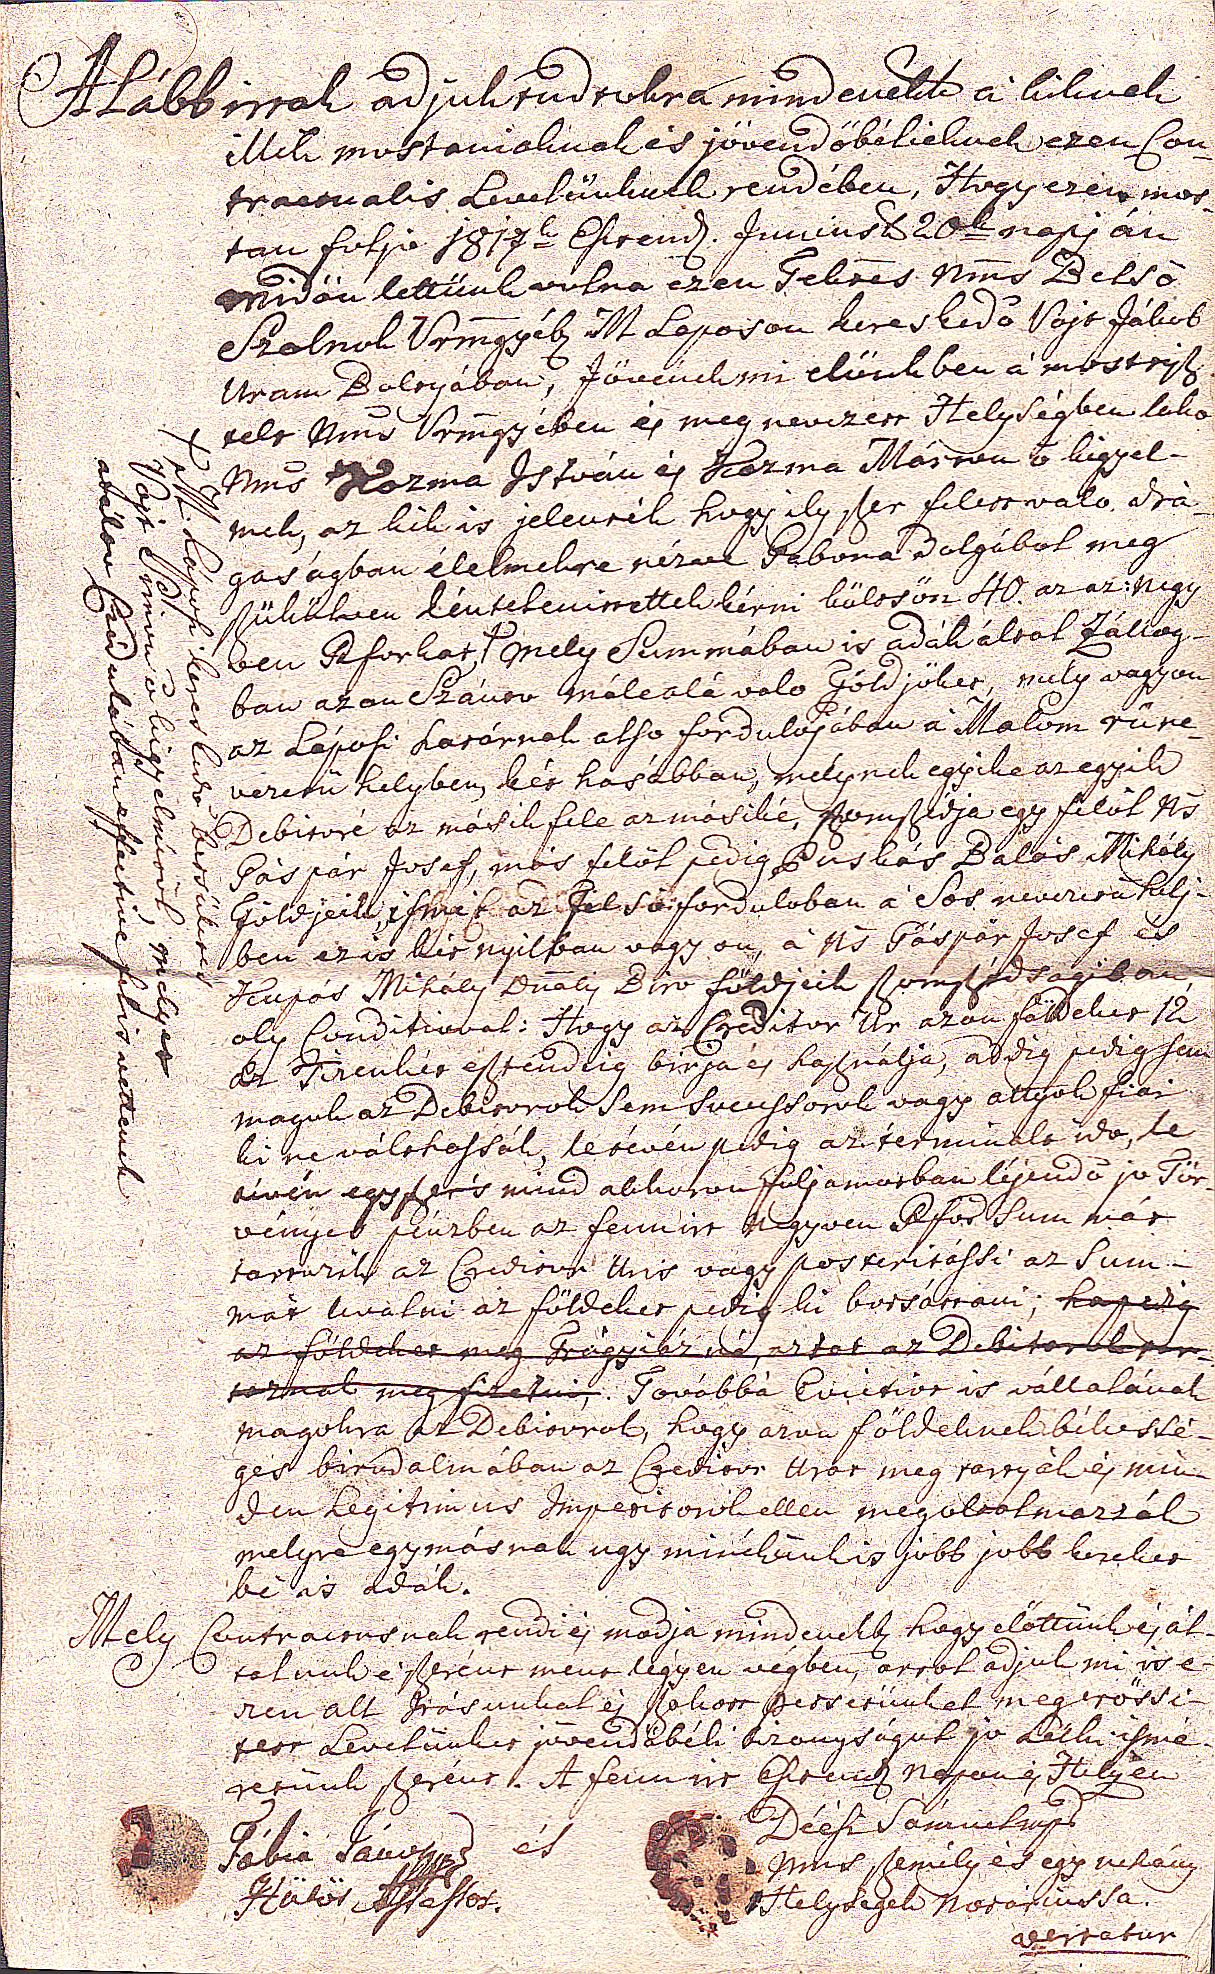 Alább irrak adjuk tudtokra mindenekk a kiknek
illik mostaniaknak és jövendőbélieknek ezen Con-
tractualis Levelünknek rendiben, Hogy ezen mos-
tan folyo 1817k Esztend. Juniusk 20k napján
midön lettünk volna ezen Tekéns Nms Belső
Szolnok Vrmgyéb M Laposon kereskedő Vajt Jákob
Uram Boltyában, Jövének mi előnkben a mostt
telt Nms Vrmgyében és meg nevezett Helységben lako
Nms Kozma István és Kozma Márton ő kigyel-
mek, az kik is jelenték hogy ily szer felett való drá-
gaságban élelmekre nézve Gabona dolgábol meg
szükülven kéntelenittettek kérni költsön 40. az az: negy
ven Rforkat, † mely Summában is adák által Zálog-
ban azon Szánto máléalá valo Földjöket, mely vagyon
az Láposi határnak alsó fordulojában a Malom rüre-
vezetü helyben, két hasábban, melynek egyike az egyik
Debitoré az másik fele az másiké, szomszédja egy felöl Ns
Gáspár Josef, más felöl pedig Puskás Balás Mihály
Földjeik, ismét az Felső forduloban a Sos nevezetü hely-
ben ez is két nyilban vagyon, a Ns Gáspár Josef és
Kupás Mihály Biro földjeik szomszédságiban,
oly Conditioval: Hogy az Creditor Ur azon földeket 12
az Tizenkét esztendeig birja és használja, addig pedig sem
maguk az Debitorok sem Successorok vagy attyok fiai
ki ne válthassák, letévén pedig az terminalt ido, le
tévén egyszer s mind akkoron foljamatban léjendő jo Tör-
vényes pénzben az fennirt Negyven Rfor Summát
tartozik az Creditor Uris vagy posteritássi az Sum-
mát levenni az földeket pedig ki botsáttani; ha pedig
az földeket meg Trágyázná, aztot az Debitorok tar-
toznak meg fizetni, Továbbá Evictiot is vállalának
magokra az Debitorok, hogy azon földeknek békessé-
ges birodalmában az Creditor Urat meg tartják és min-
den Legitimus Impetitorok ellen megoltalmazzák
melyre egymásnak ugy minékünk is jobb jobb kezeket
bé is adák.
Mely Contractusnak rendi és modja mindenekb hogy előttünk és ál-
talunk é szerént ment légyen végben, arrol adjuk mi is e-
zen alt Irásunkal és szokott petsetünkel megerössi-
tett Levelünket jövendőbéli bizonyságul jo Lelki isme-
retünk szerént. A fennirt Esztend Napon és Helyen
Fábiá János és
Hütös Assessor.
Déési Sámuel mp
Nms személy és egy nehány
Helységek Notariussa.
† M. Láposi kereskedő betsületes
Vajt Simon ő kigyelmétöl melyet
atálon Czédulában effective fel is vettenek